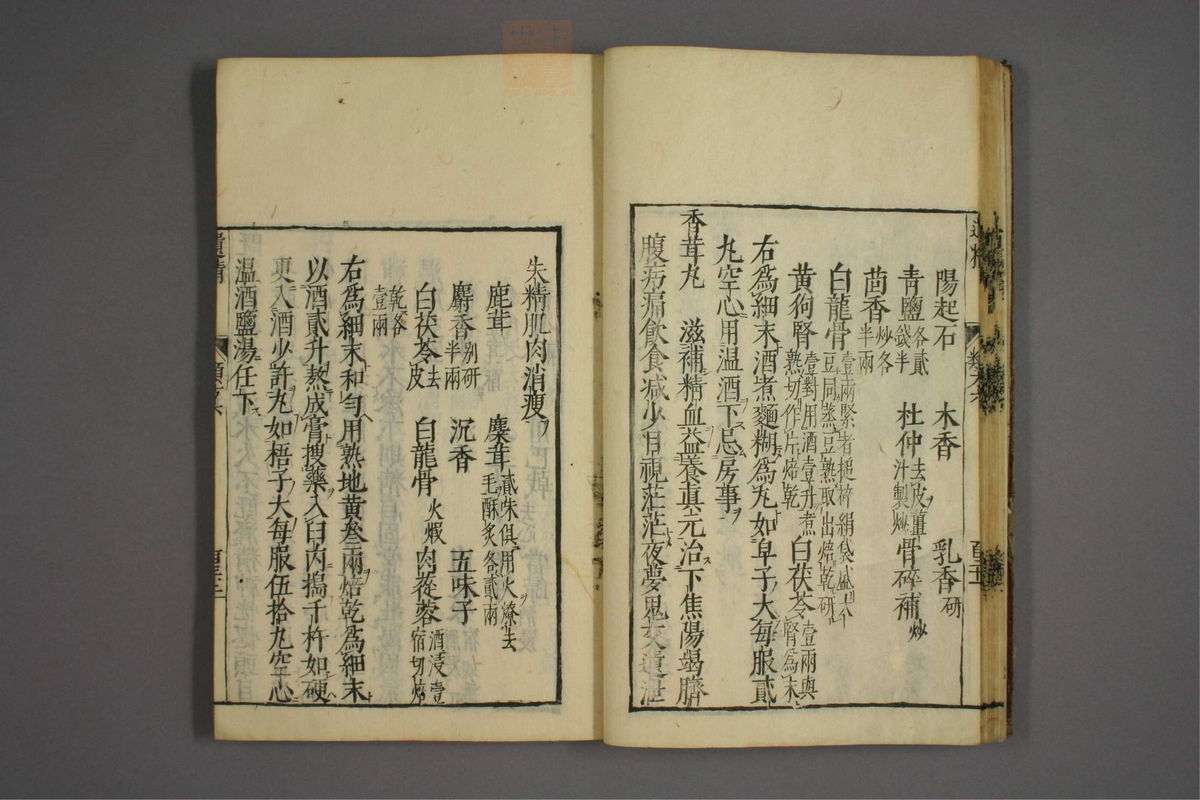 陽起石　木香　乳香研
青鹽各貳錢半　杜仲去皮薑汁製炒　骨碎補炒
茴香炒各半兩
白龍骨壹兩緊者挺碎絹袋盛大豆同蒸豆熟取出焙乾研
黄狗腎壹對用酒壹升煮熟切作片焙乾　白茯苓壹兩與腎為末
右爲細末酒煮麵糊爲丸如皁子大每服貳
丸空心用温酒下忌房事
香茸丸　滋補精血益養真元治下焦陽竭臍
腹㽲痛飲食减少目視茫茫夜夢鬼交遺泄
遺精
失精肌肉消瘦
鹿茸　麋茸貳味俱用火燎去毛酥炙各貳兩
麝香别研半兩　沉香　五味子
白茯苓去皮　白龍骨火煅　肉蓯蓉酒浸壹宿切焙
乾各壹兩
右爲細末和勻用熟地黄叁兩焙乾爲細末
以酒貳升熬成膏搜藥入臼内搗千杵如硬
更入酒少許丸如梧子大每服伍拾丸空心
温酒鹽湯任下
遺精